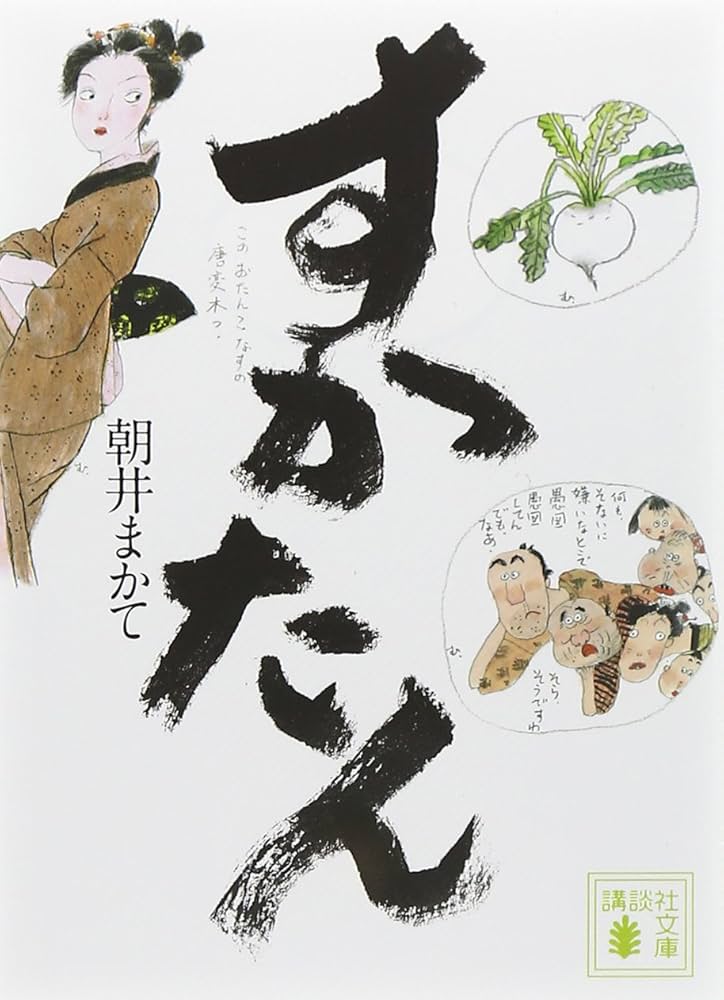 すかたん
このおたんこなすの
唐変木っ。
朝井まかて
む.
む.
何も
そないに
嫌いなとこで
愚図
愚図
してん
でも、
なあ。
そら、
そうですわ
む.
講談社
文庫